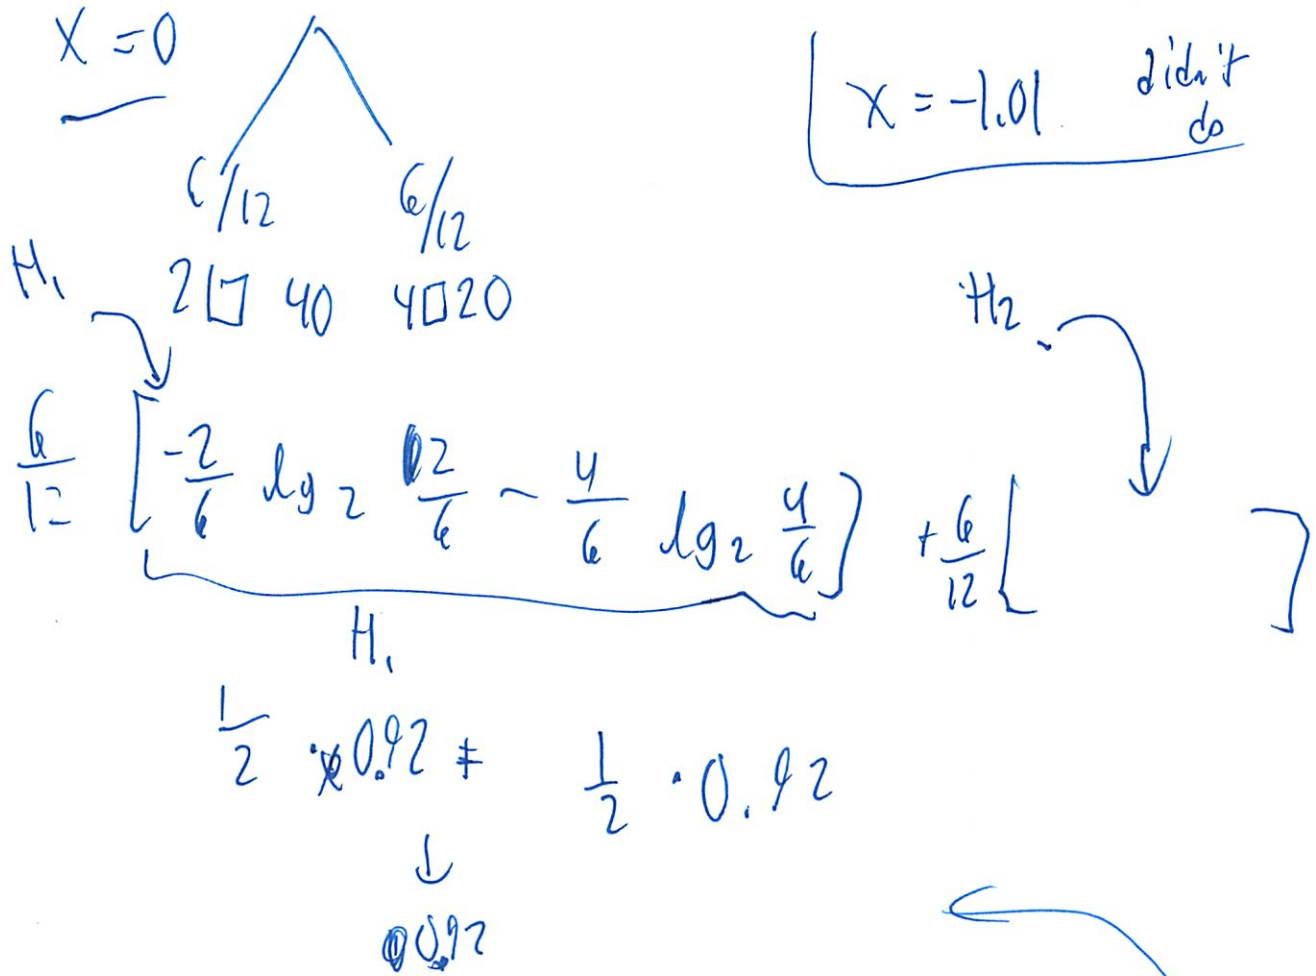 X = 0
x = -1.01 didn't do
6/12 6/12
H₁ 2□ 4O 4□ 2O
H₂
6/12 [ -2/6 lg₂ 2/6 - 4/6 lg₂ 4/6 ] + 6/12 [ ]
H₁
1/2 · 0.92 + 1/2 · 0.92
↓
0.92